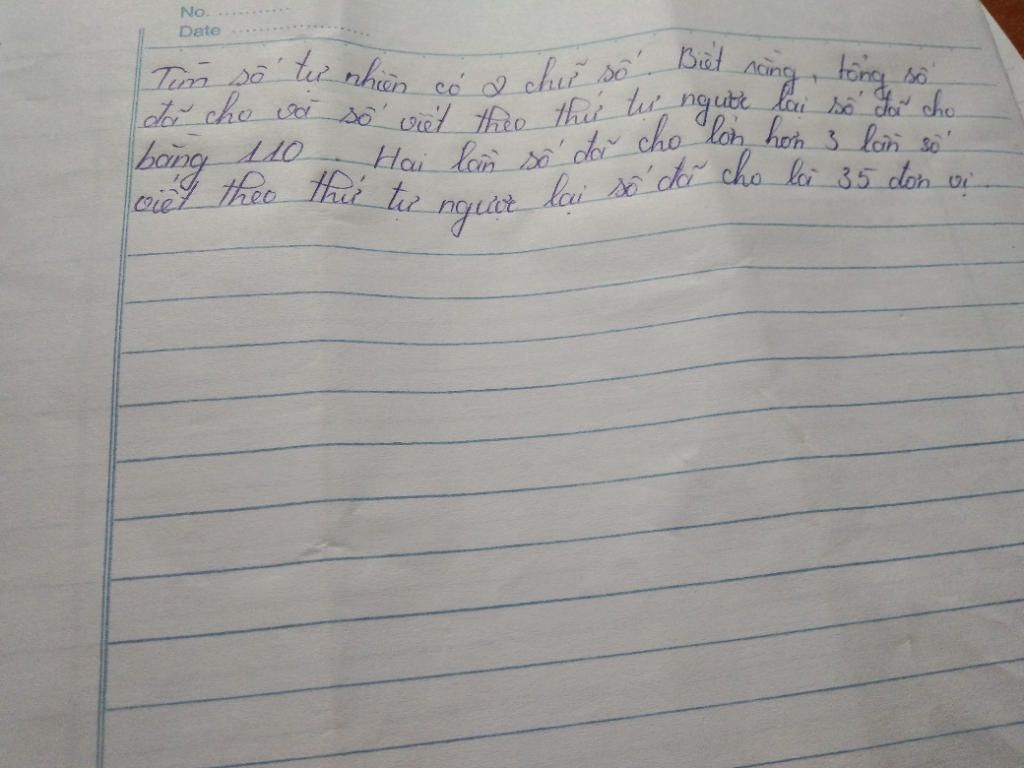 No. ............
Date ........................
Tìm số tự nhiên có 2 chữ số. Biết rằng, tổng số
đã cho và số viết theo thứ tự ngược lại số đã cho
bằng 110. Hai lần số đã cho lớn hơn 3 lần số
viết theo thứ tự ngược lại số đã cho là 35 đơn vị.